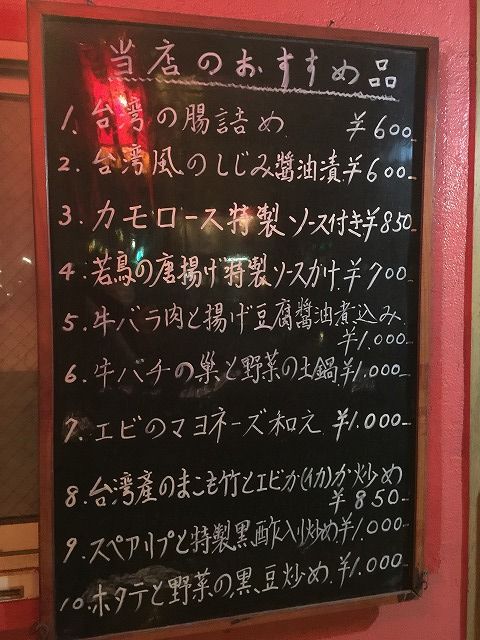 当店のおすすめ品
1. 台湾の腸詰め ¥600
2. 台湾風のしじみ醬油漬 ¥600-
3. カモロース特製ソース付き ¥850
4. 若鳥の唐揚げ特製ソースかけ ¥700-
5. 牛バラ肉と揚げ豆腐醬油煮込み
¥1,000-
6. 牛バチの巣と野菜の土鍋 ¥1,000-
7. エビのマヨネーズ和え ¥1.000-
8. 台湾産のまこも竹とエビか(イカ)か炒め
¥850-
9. スペアリブと特製黒酢入り炒め ¥1,000-
10. ホタテと野菜の黒豆炒め ¥1.000-